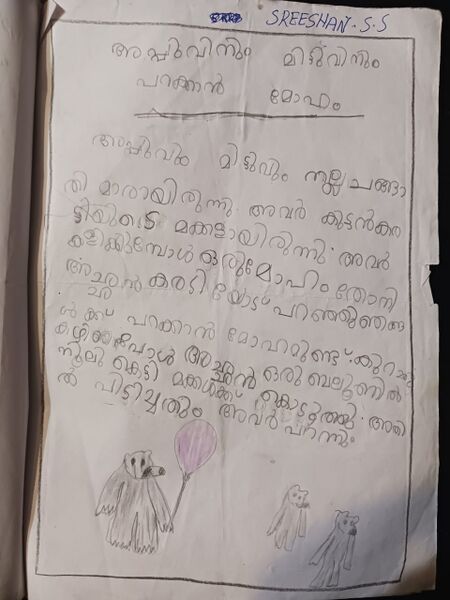 SREESHAN.S.S
അപ്പുവിനും മിട്ടുവിനും
പറക്കാൻ മോഹം
അപ്പുവും മിട്ടുവും നല്ല ചങ്ങാ
തി മാരായിരുന്നു. അവർ കുട്ടൻകര
ടിയുടെ മക്കളായിരുന്നു. അവർ
കളിക്കുമ്പോൾ ഒരുമോഹം തോന്നി
അച്ഛൻ കരടി യോട് പറഞ്ഞുഞങ്ങ
ൾ ക്ക് പറക്കാൻ മോഹമുണ്ട്. കുറച്ചു
കഴിഞ്ഞപ്പോൾ അച്ഛൻ ഒരു ബലൂണിൽ
നൂലി കെട്ടി മക്കൾക്ക് കൊടുത്തു. അതി
ൽ പിടിച്ചതും അവർ പറന്നു.